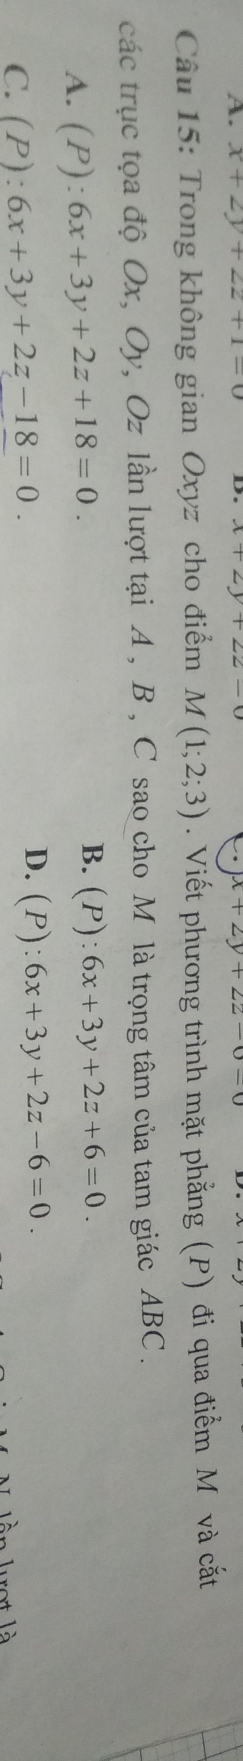 A. x + 2y + 2z + 1 = 0 B. x + 2y + 2z = 0 C. x + 2y + 2z − 6 = 0 D.
Câu 15: Trong không gian Oxyz cho điểm M(1;2;3). Viết phương trình mặt phẳng (P) đi qua điểm M và cắt
các trục tọa độ Ox, Oy, Oz lần lượt tại A, B, C sao cho M là trọng tâm của tam giác ABC.
A. (P): 6x + 3y + 2z + 18 = 0. B. (P): 6x + 3y + 2z + 6 = 0.
C. (P): 6x + 3y + 2z − 18 = 0. D. (P): 6x + 3y + 2z − 6 = 0.
M, N lần lượt là